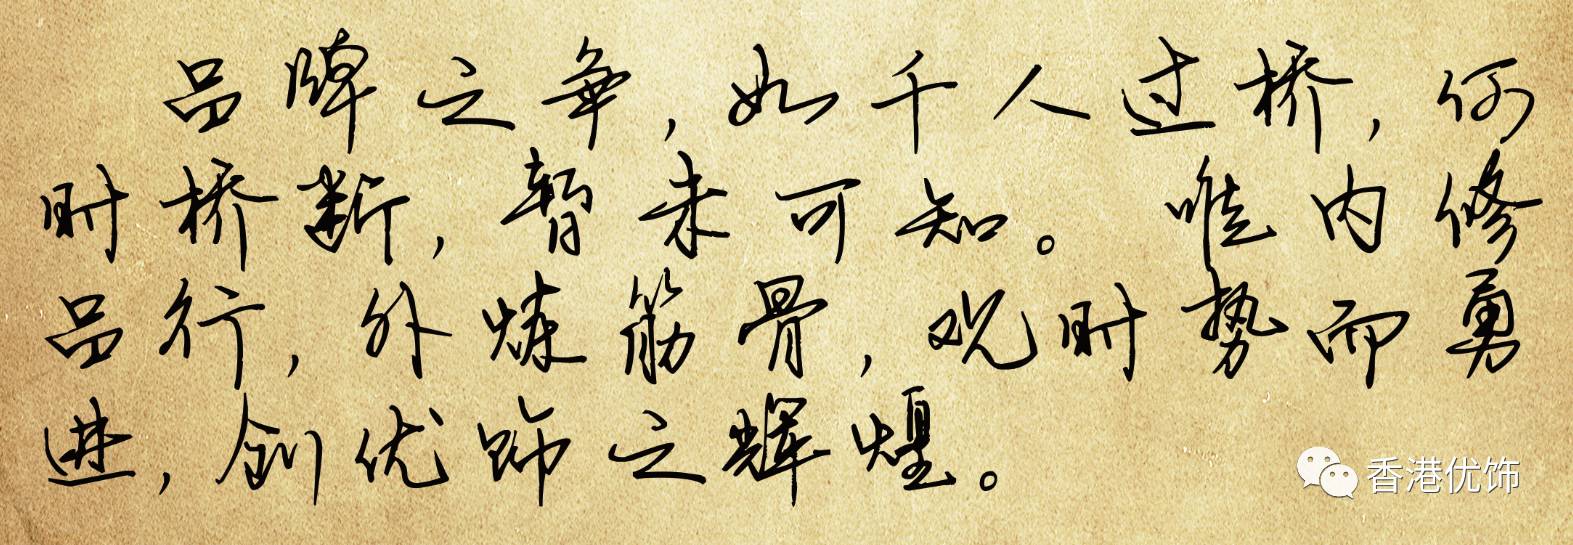 品牌之争，如千人过桥，何
时桥断，暂未可知。唯内修
品行，外炼筋骨，观时势而勇
进，创优饰之辉煌。
香港优饰